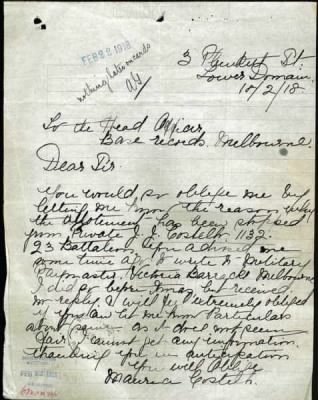 FEB 28 1918
nothing later in cards
3 Plunkett St.
Lower Domain.
10/2/18.
To the Head Officer,
Base records. Melbourne.
Dear Sir
You would so oblige me by
letting me know the reason why
the allotment has been stopped
from Private J Costello. 1132.
23 Battalion. You advised me
some time ago I write to Military
Paymaster. Victoria Barracks Melbourne
I did so before Xmas but received
no reply. I will be extremely obliged
if you can let me know Particulars
about same as it does not seem
fair I cannot get any information.
thanking you in anticipation
You will oblige
Maurice Costello.